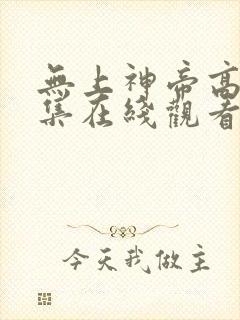 無上神帝高
集在綫觀看
今天我做主